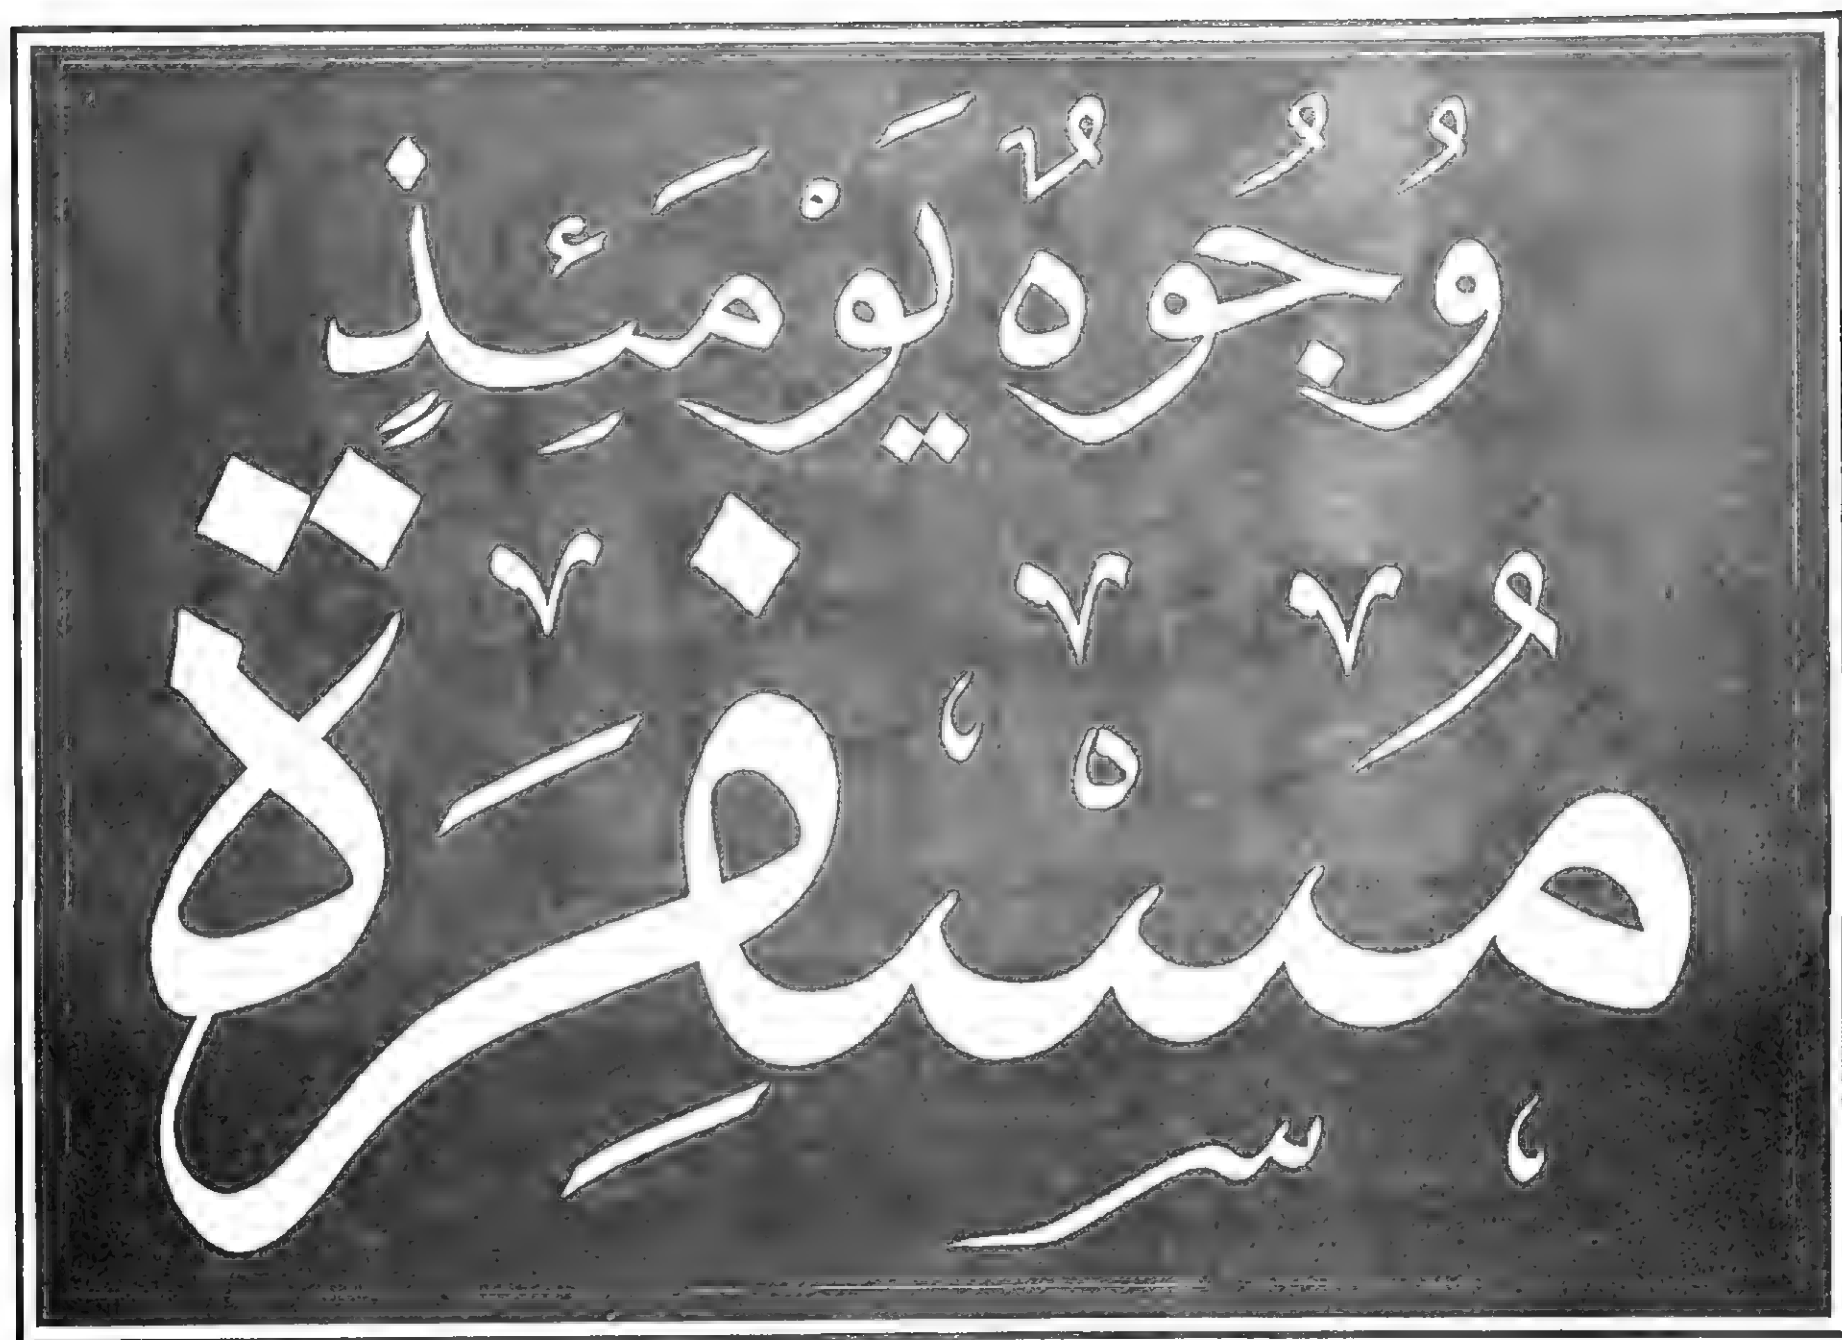 وُجُوهٌ يَوْمَئِذٍ
مُسْفِرَة